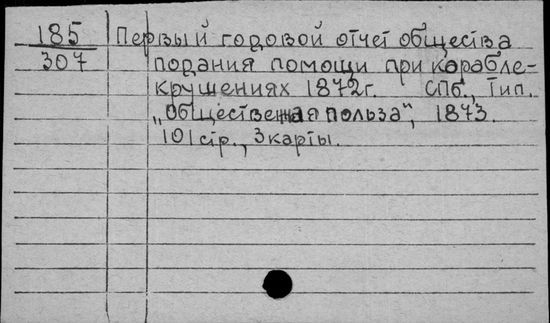 185 Первый годовой отчет общества
307 подания помощи при корабле-
крушениях 1872г. СПб., Тип.
„Общественная польза", 1873.
101 стр., 3 карты.